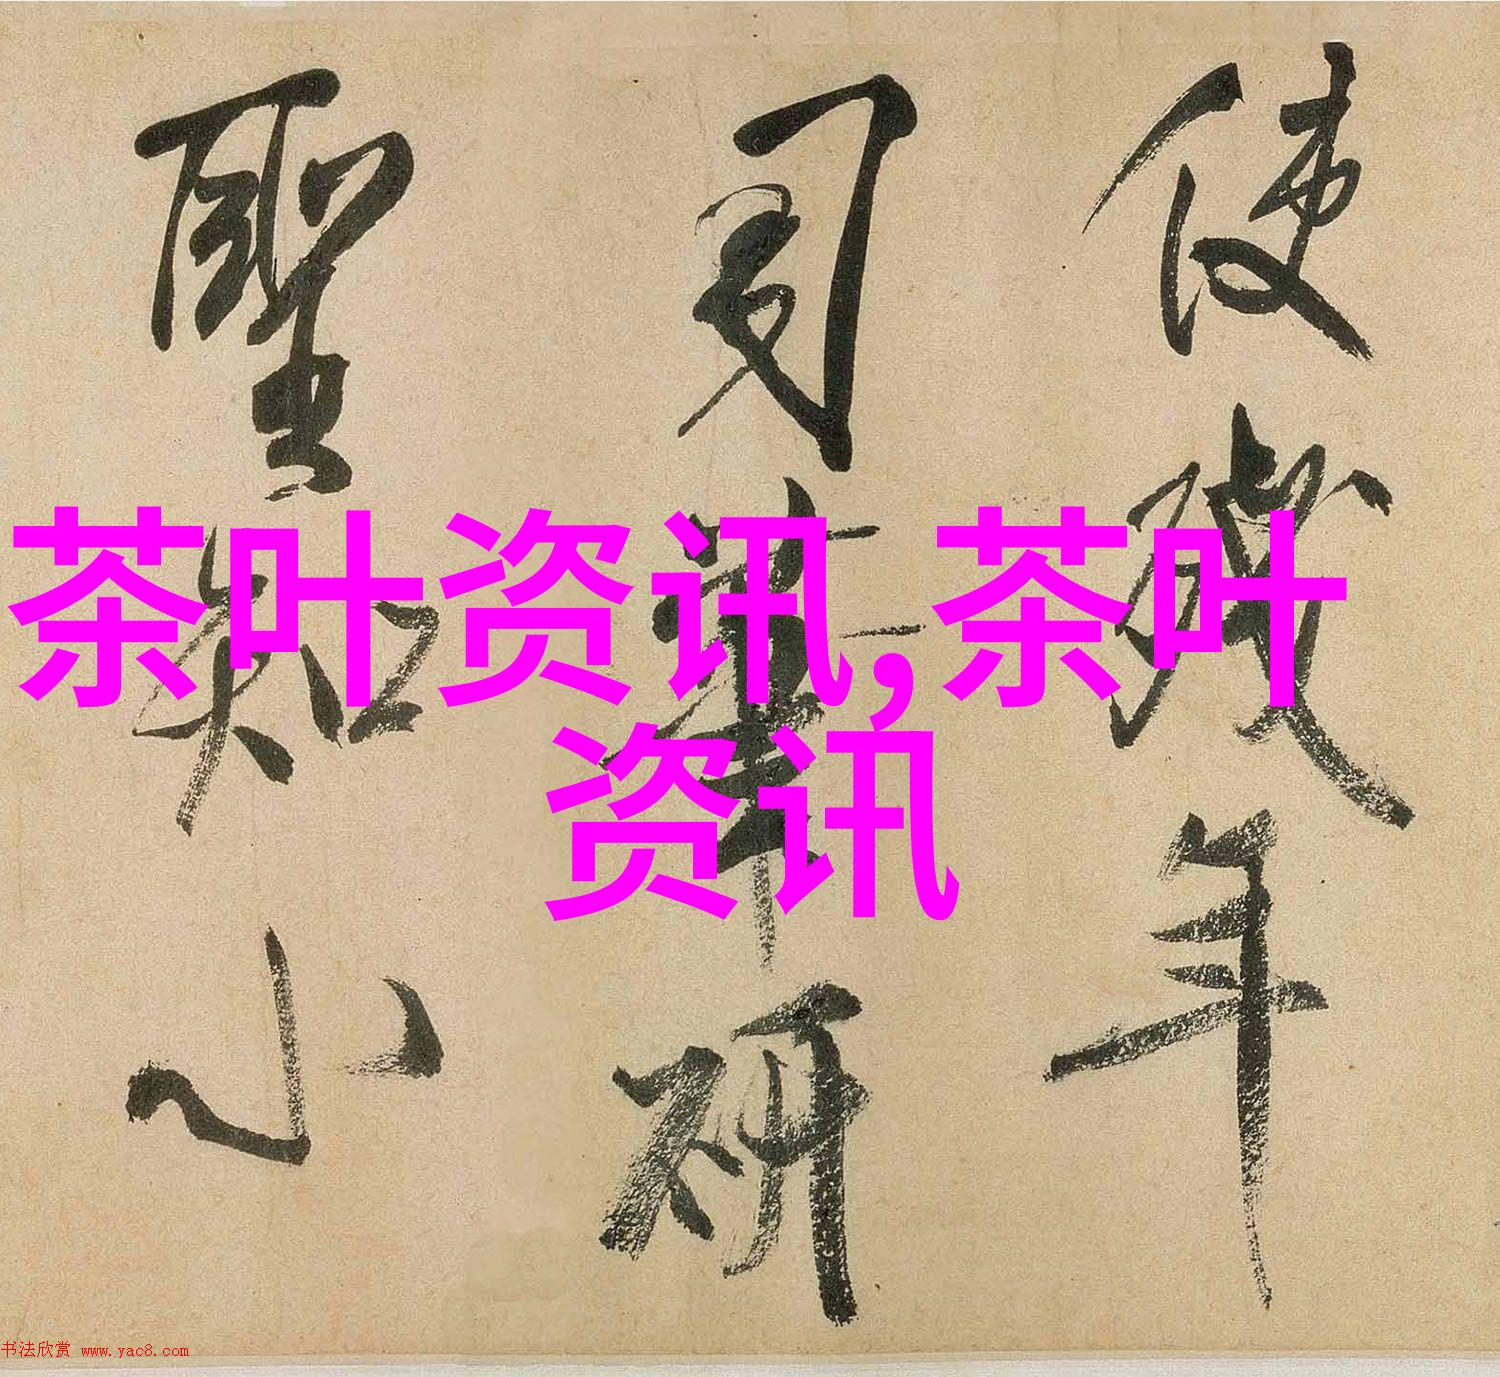 使殘年
司筆研
聖知小
茶叶资讯,茶叶
资讯
书法欣赏 www.yac8.com